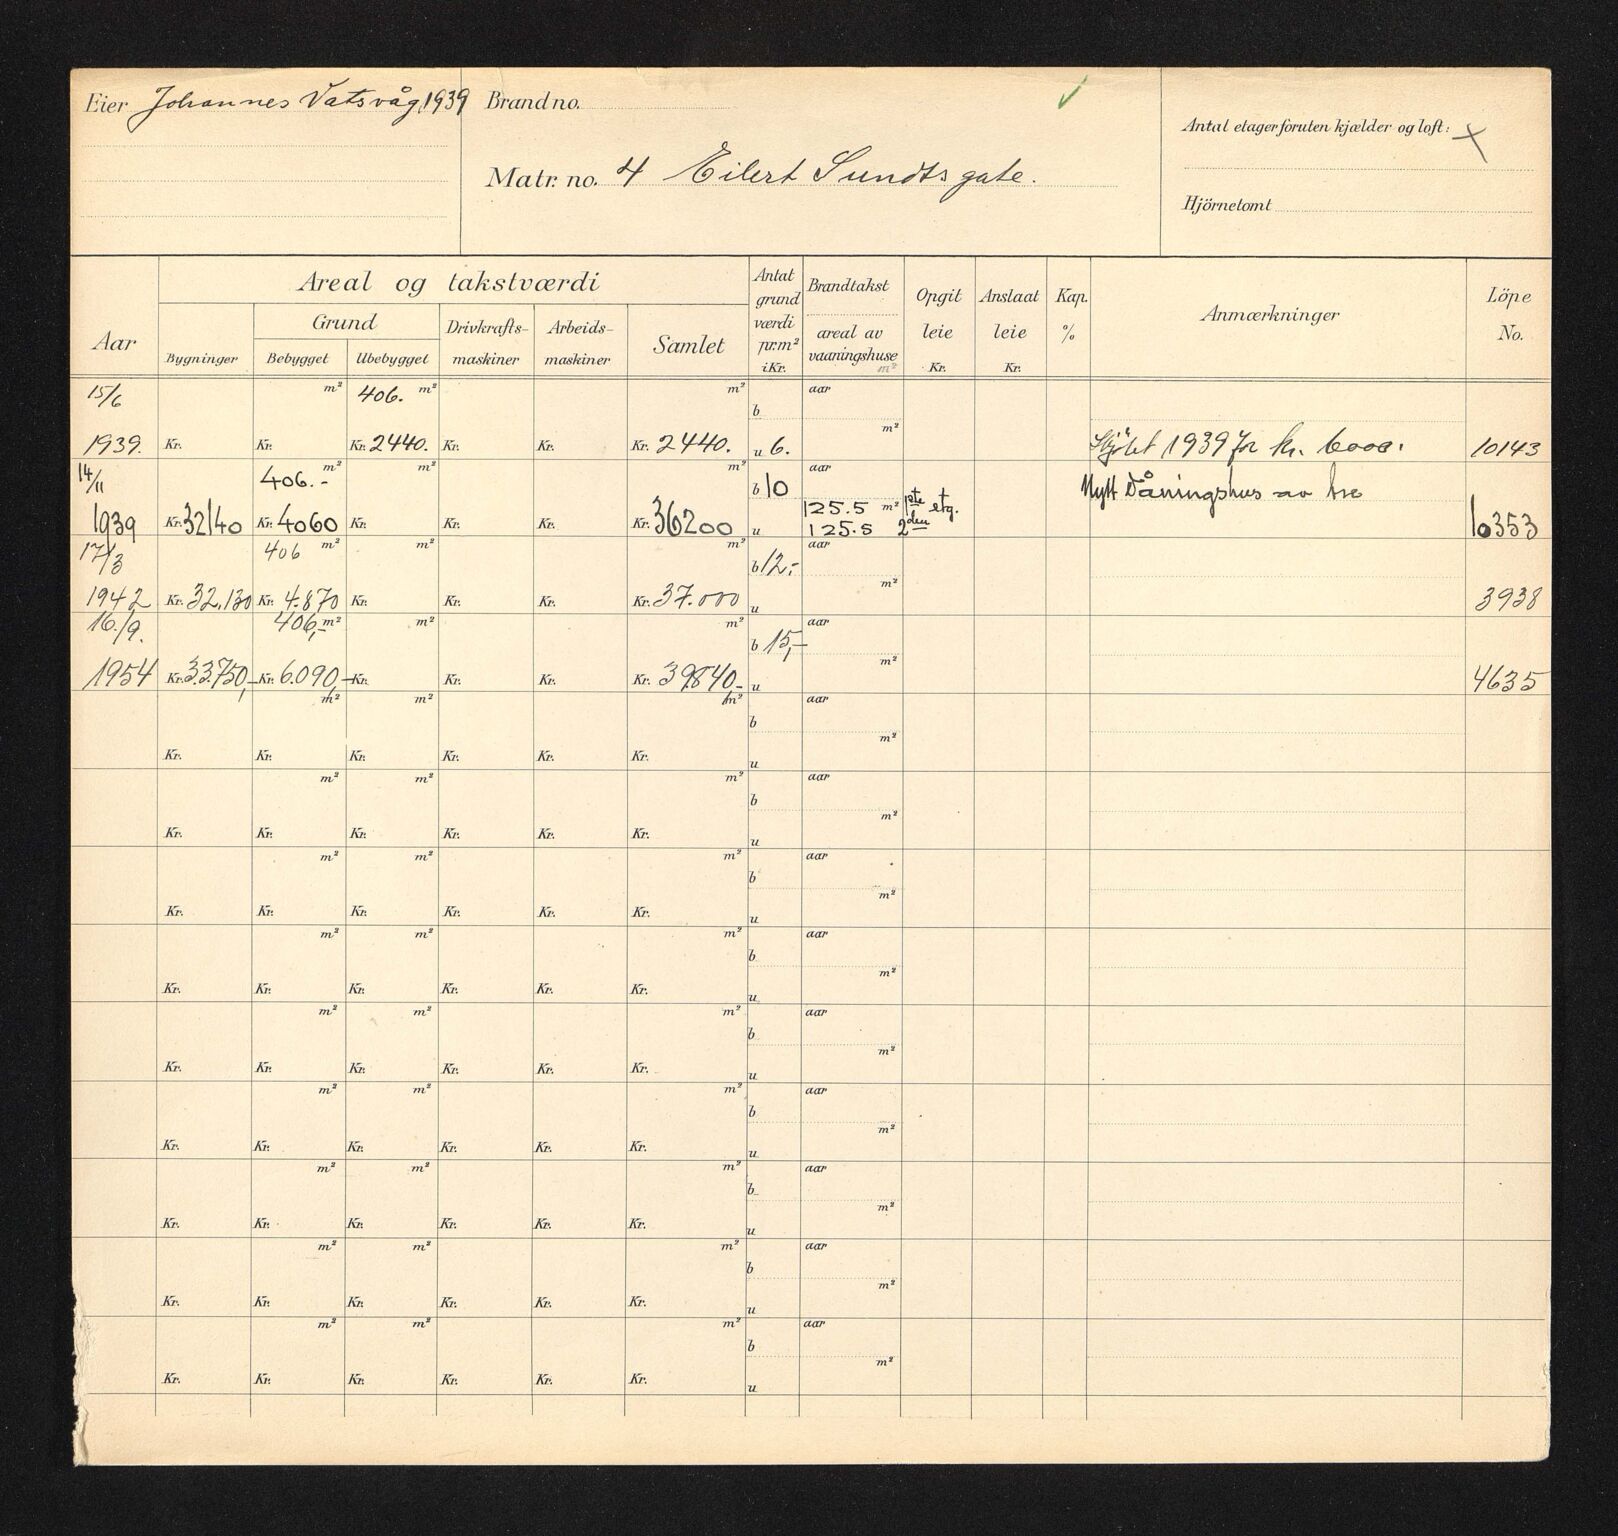 Eier Johannes Vatsvåg, 1939
Brand no.
Matr. no. 4 Eilert Sundtsgate.
Antal etager foruten kjælder og loft:
Hjörnetomt
Aar
Areal og takstværdi
Bygninger
Grund
Bebygget
Ubebygget
Drivkrafts-
maskiner
Arbeids-
maskiner
Samlet
Antat
grund
værdi
pr. m²
i Kr.
Brandtakst
areal av
vaaningshuse
m²
Opgit
leie
Kr.
Anslaat
leie
Kr.
Kap.
%
Anmærkninger
Löpe
No.
15/6 m² 406. m² m² b aar
m²
1939. Kr. Kr. Kr. 2440. Kr. Kr. Kr. 2440. u 6. Skjötet 1939 for kr. 6000. 10143
14/11 406.- m² m² m² b 10 aar Nytt Våningshus av tre
125.5 m² 1ste etg.
1939 Kr. 32140 Kr. 4060 Kr. Kr. Kr. Kr. 36200 u 125.5 2den 10353
17/3 406 m² m² m² b 12,- aar
m²
1942 Kr. 32.130 Kr. 4.870 Kr. Kr. Kr. Kr. 37.000 u 3938
16./9. 406,- m² m² m² b 15,- aar
m²
1954 Kr. 33.750,- Kr. 6.090,- Kr. Kr. Kr. Kr. 39840,- u 4635
m² m² m² b aar
m²
Kr. Kr. Kr. Kr. Kr. Kr. u
m² m² m² b aar
m²
Kr. Kr. Kr. Kr. Kr. Kr. u
m² m² m² b aar
m²
Kr. Kr. Kr. Kr. Kr. Kr. u
m² m² m² b aar
m²
Kr. Kr. Kr. Kr. Kr. Kr. u
m² m² m² b aar
m²
Kr. Kr. Kr. Kr. Kr. Kr. u
m² m² m² b aar
m²
Kr. Kr. Kr. Kr. Kr. Kr. u
m² m² m² b aar
m²
Kr. Kr. Kr. Kr. Kr. Kr. u
m² m² m² b aar
m²
Kr. Kr. Kr. Kr. Kr. Kr. u
m² m² m² b aar
m²
Kr. Kr. Kr. Kr. Kr. Kr. u